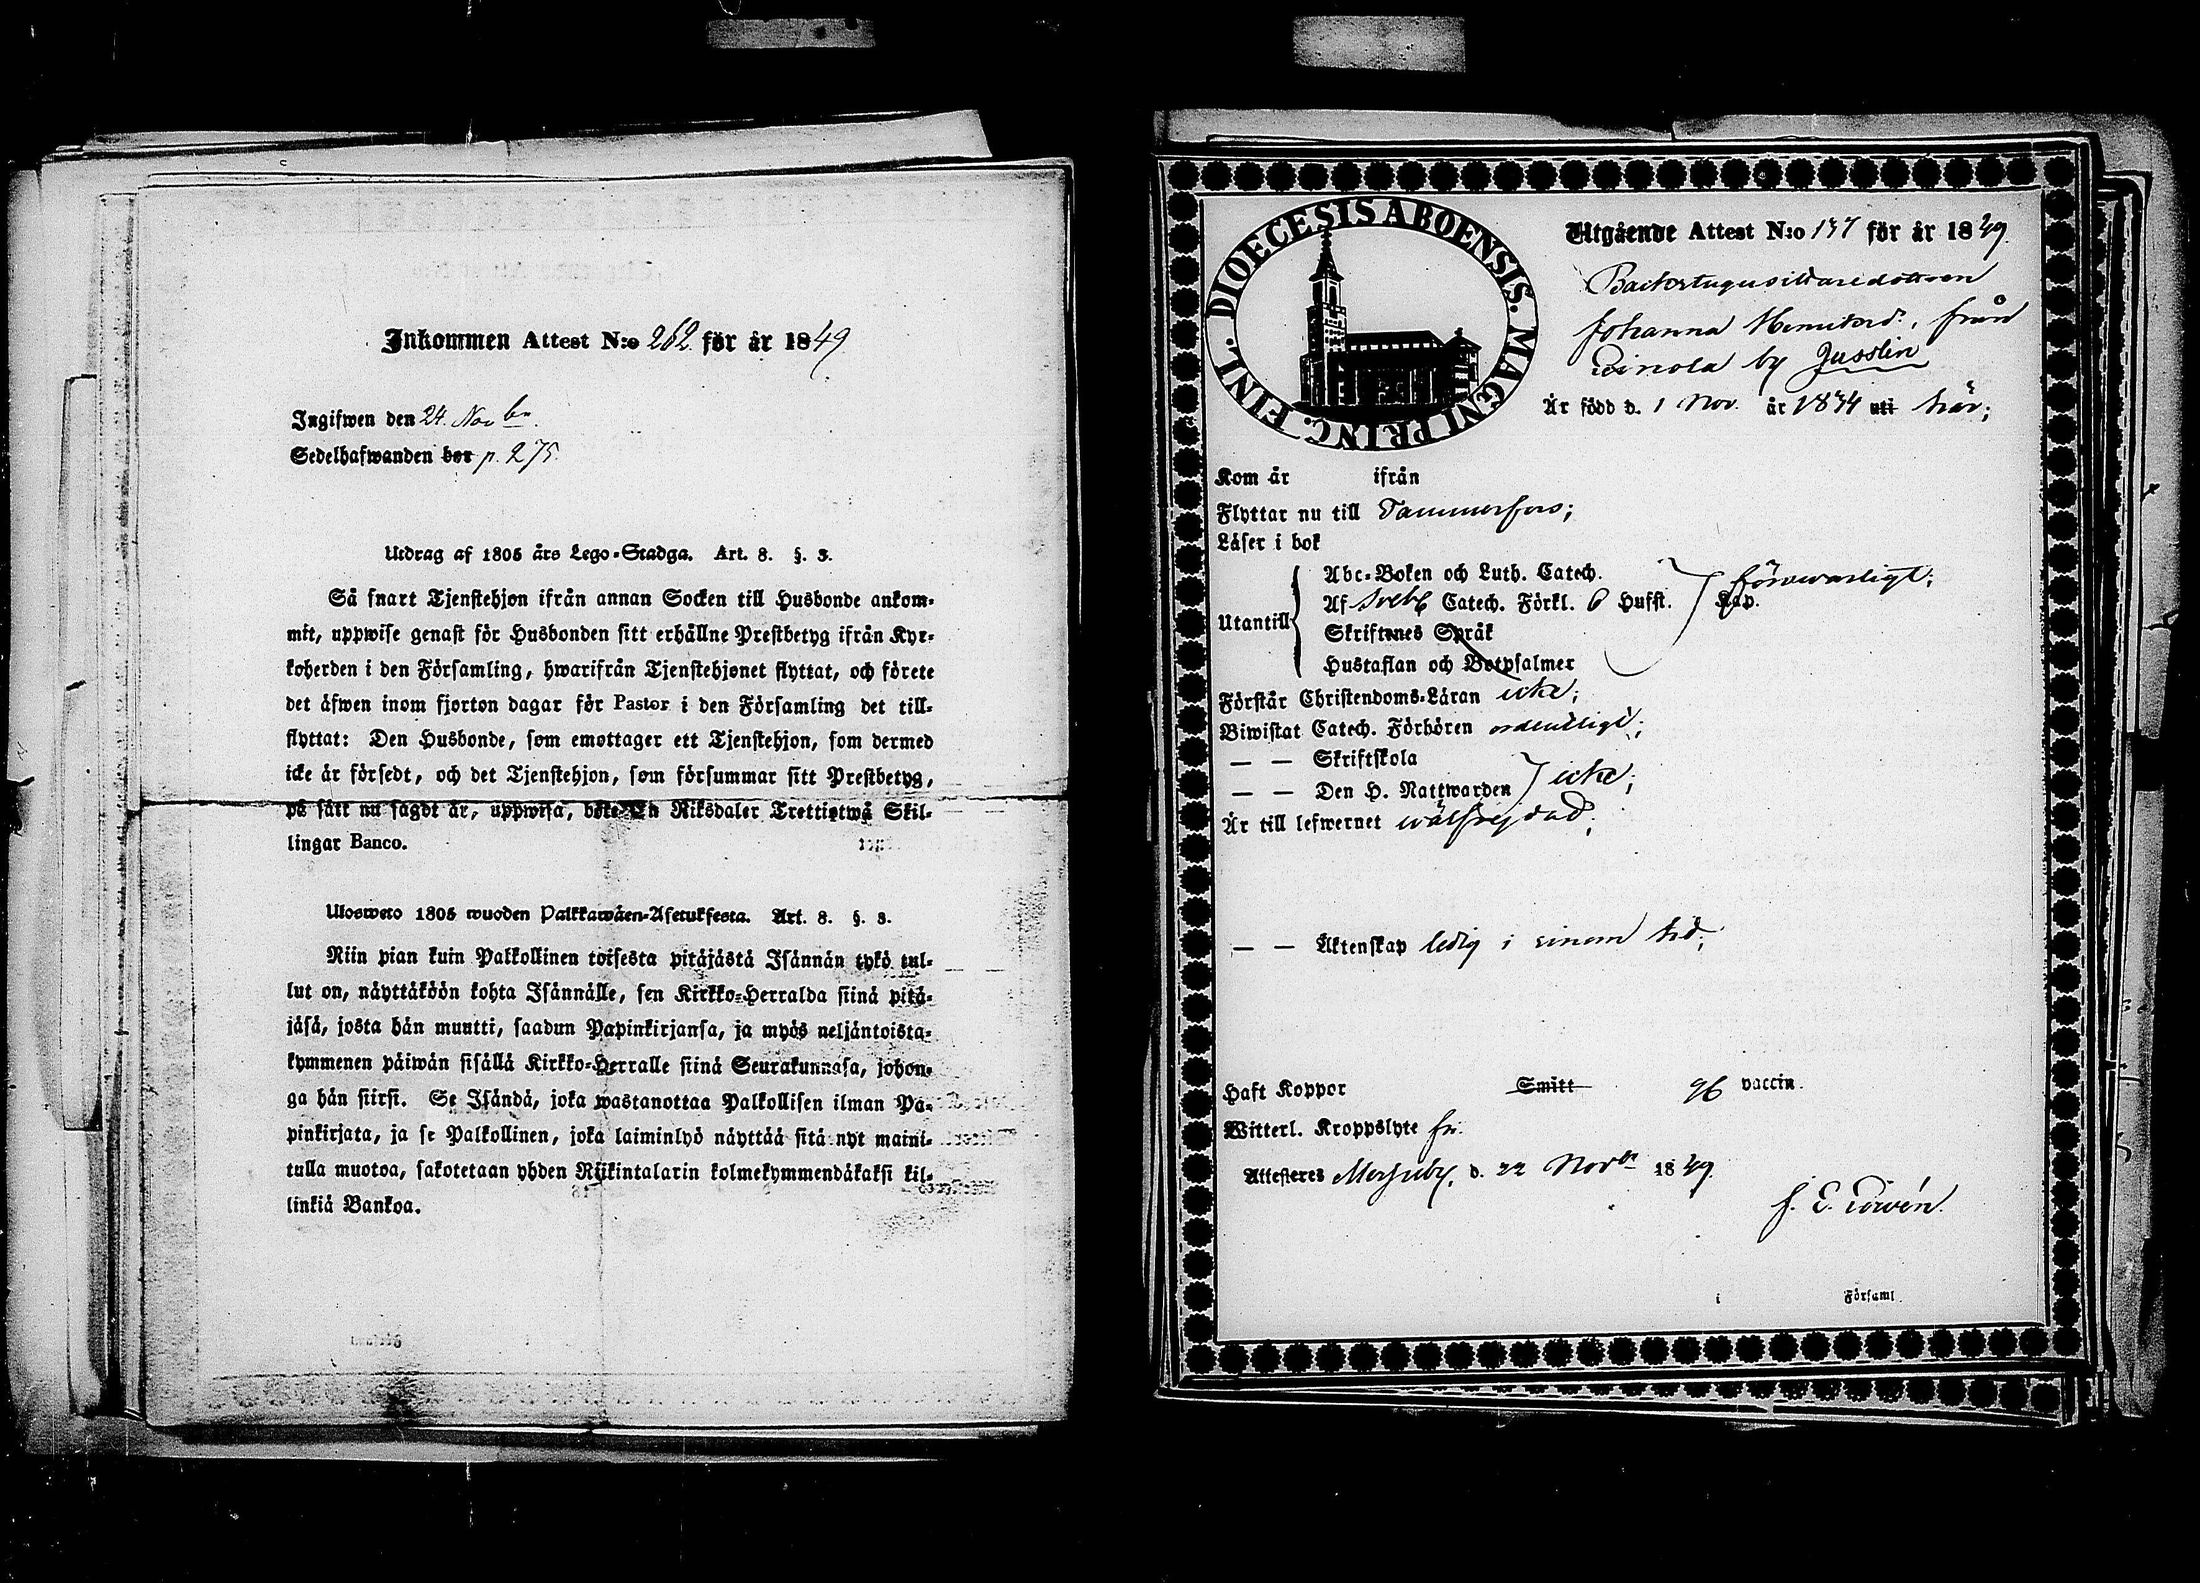 Inkommen Attest N:o 262 för år 1849
Ingifwen den 24 Novbr.
Sedelhafwanden bor p. 275
Utdrag af 1805 års Lego-Stadga. Art. 8. §. 3.
Så snart Tjenstehjon ifrån annan Socken till Husbonde ankom-
mit, uppwise genast för Husbonden sitt erhållne Prestbetyg ifrån Kyr-
koherden i den Församling, hwarifrån Tjenstehjonet flyttat, och förete
det äfwen inom fjorton dagar för Pastor i den Församling det till-
flyttat: Den Husbonde, som emottager ett Tjenstehjon, som dermed
icke är försedt, och det Tjenstehjon, som försummar sitt Prestbetyg,
på sätt nu sagdt är, uppwisa, böte En Riksdaler Trettiotwå Skil-
lingar Banco.
Ulosweto 1805 wuoden Palkkawäen-Asetuksesta. Art. 8. §. 3.
Niin pian kuin Palkollinen toisesta pitäjästä Isännän tykö tul-
lut on, näyttäköön kohta Isännälle, sen Kirkko-Herralda siinä pitä-
jäsä, josta hän muutti, saadun Papinkirjansa, ja myös neljäntoista-
kymmenen päiwän sisällä Kirkko-Herralle siinä Seurakunnasa, johon-
ga hän siirsi. Se Isändä, joka wastanottaa Palkollisen ilman Pa-
pinkirjata, ja se Palkollinen, joka laiminlyö näyttää sitä nyt maini-
tulla muotoa, sakotetaan yhden Riikintalarin kolmekymmendäkaksi kil-
linkiä Bankoa.
DIOECESIS ABOENSIS. MAGNI PRINC. FINL.
Utgående Attest N:o 137 för år 1849.
Backstugusittaredottren
Johanna Henriksd. från
by Jusslin
Är född d. 1 Nov. år 1834 uti här;
Kom år ifrån
Flyttar nu till Tammerfors;
Läser i bok
Utantill
Abc-Boken och Luth. Catech.
försvarligt;
Af Sveb Catech. Förkl. 6 Hufst. Kap.
Skriftenes Språk
Hustaflan och Botpsalmer
Förstår Christendoms-Läran icke;
Biwistat Catech. Förhören ordentligt;
— — Skriftskola
— — Den H. Nattwarden icke;
Är till lefwernet wälfrejdad;
— — Äktenskap ledig i sinom tid;
Haft Koppor Smitt vaccin.
Witterl. Kroppslyte fri.
Attesteres d. 22 Novbr 1849.
i Församl.